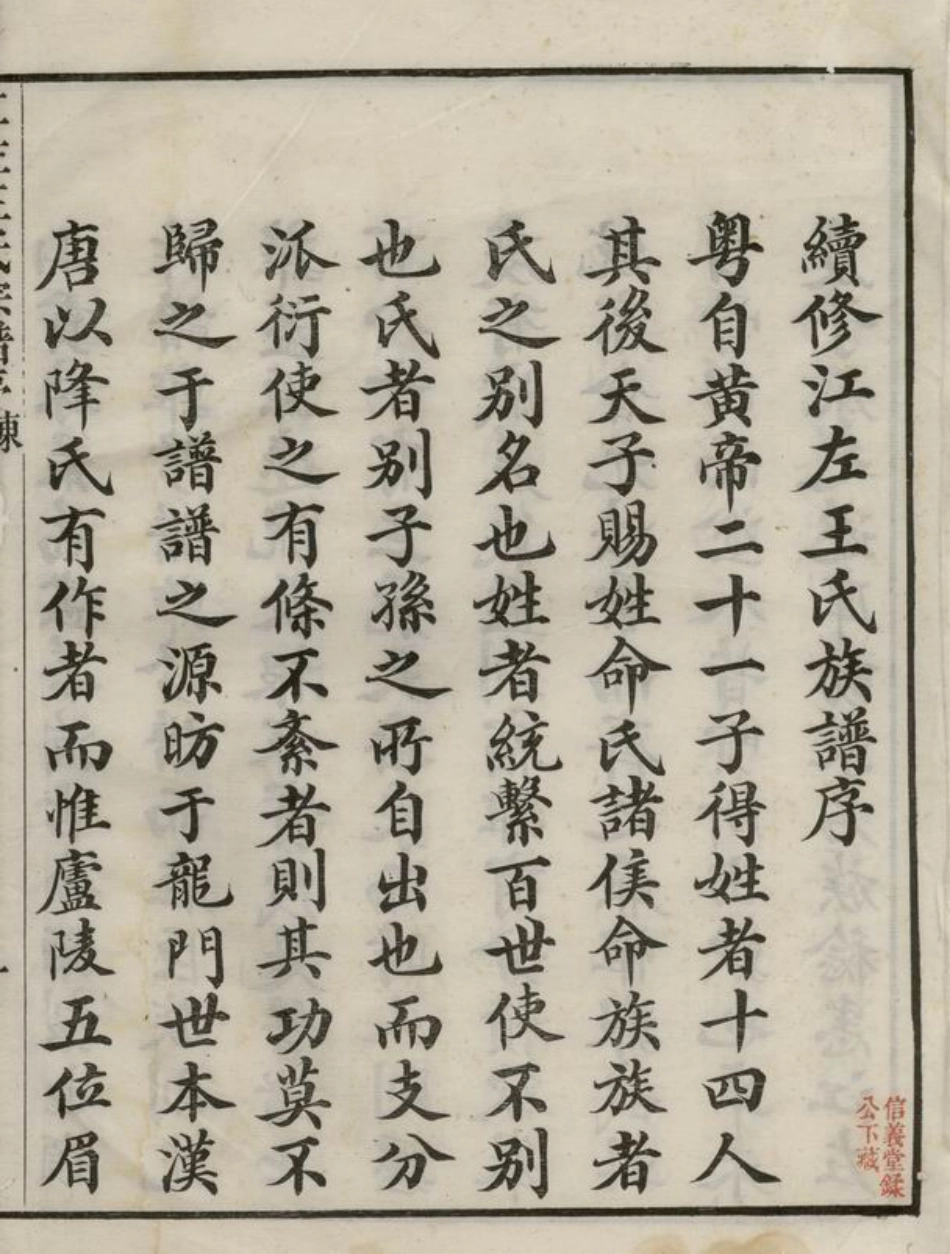 續修江左王氏族譜序
粤自黄帝二十一子得姓者十四人
其後天子賜姓命氏諸侯命族族者
氏之别名也姓者統繫百世使不别
也氏者别子孫之所自出也而支分
派衍使之有條不紊者則其功莫不
歸之于譜譜之源昉于龍門世本漢
唐以降氏有作者而惟廬陵五位眉
信義堂録
公下藏